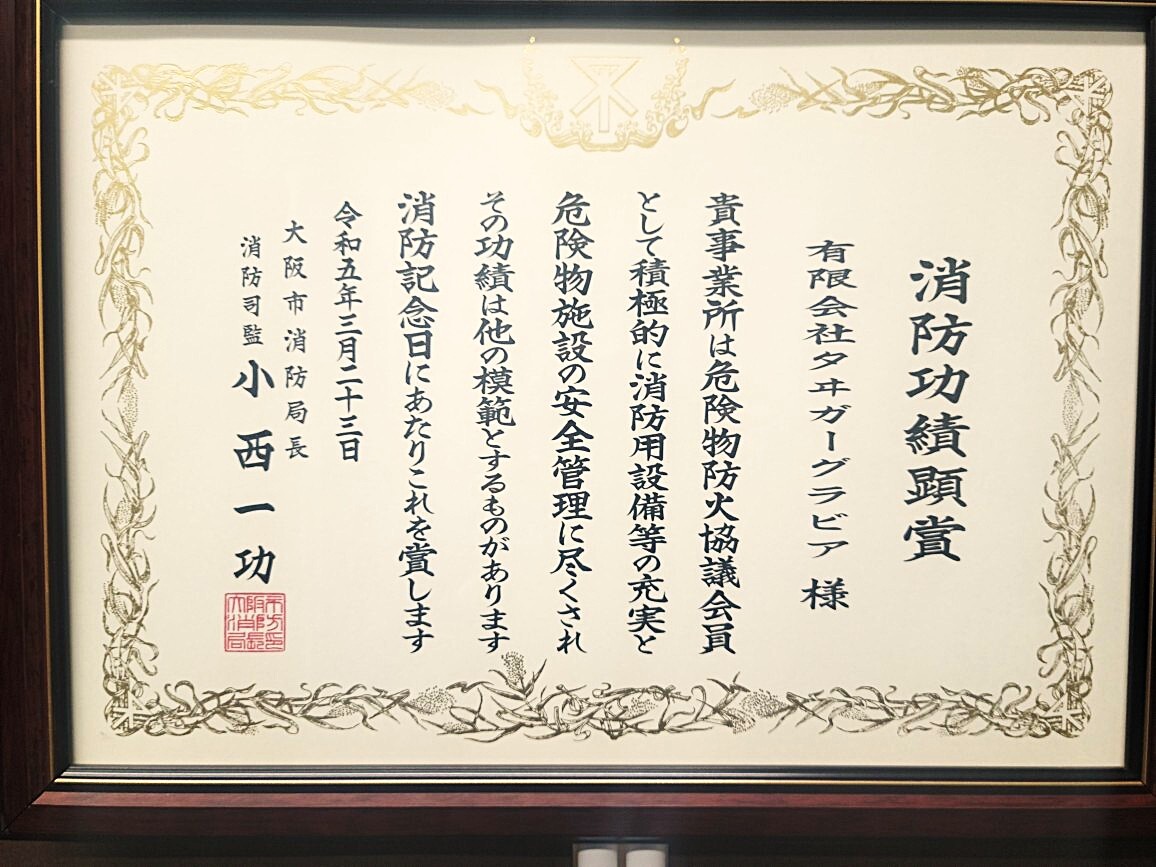 消防功績顕賞
有限会社タヰガーグラビア 様
貴事業所は危険物防火協議会員
として積極的に消防用設備等の充実と
危険物施設の安全管理に尽くされ
その功績は他の模範とするものがあります
消防記念日にあたりこれを賞します
令和五年三月二十三日
大阪市消防局長
消防司監 小西一功